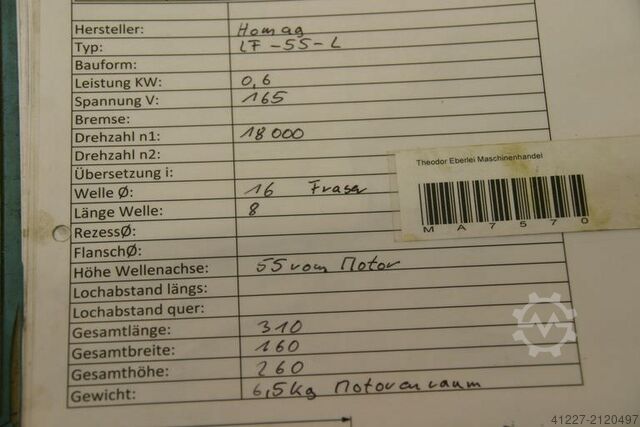 Hersteller: Homag
Typ: LF-55-L
Bauform:
Leistung KW: 0,6
Spannung V: 165
Bremse:
Drehzahl n1: 18000
Drehzahl n2:
Übersetzung i:
Welle Ø: 16 Fraser
Länge Welle: 8
RezessØ:
FlanschØ:
Höhe Wellenachse: 55 vom Motor
Lochabstand längs:
Lochabstand quer:
Gesamtlänge: 310
Gesamtbreite: 160
Gesamthöhe: 260
Gewicht: 6,5kg Motorenraum
Theodor Eberlei Maschinenhandel
MA7570
41227-2120497